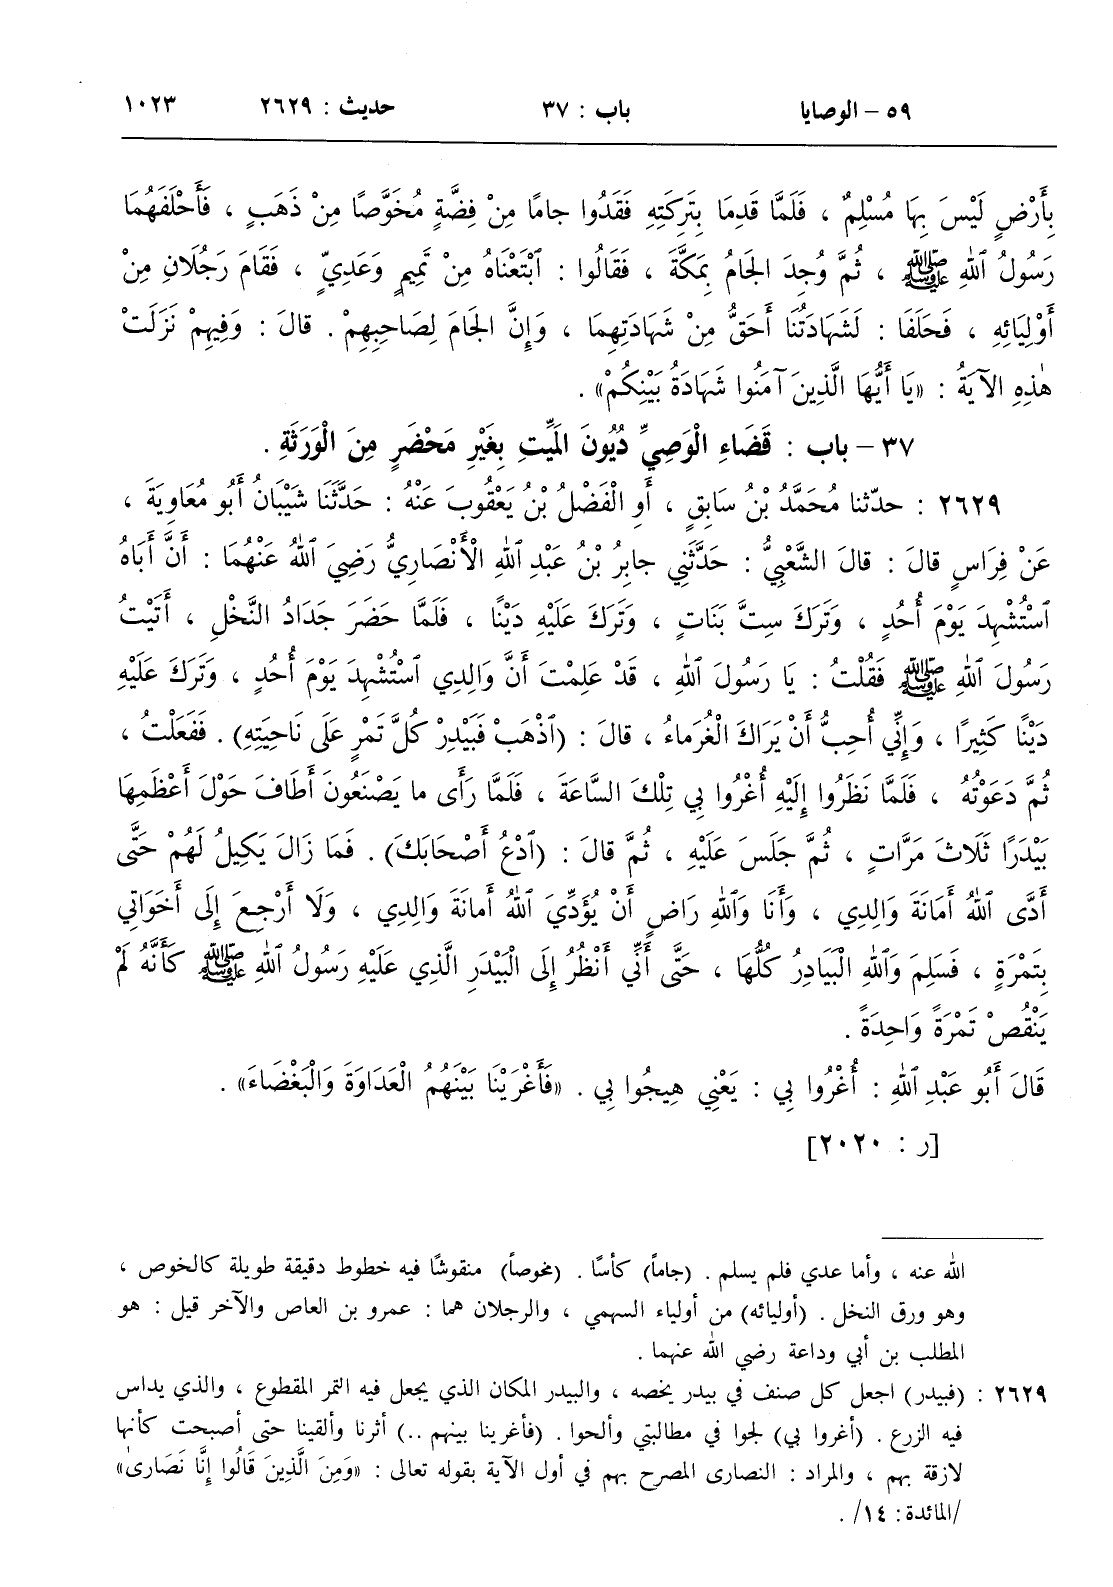 ٥٩ - الوصايا باب : ٣٧ حديث : ٢٦٢٩ ١٠٢٣
بِأَرْضٍ لَيْسَ بِهَا مُسْلِمٌ ، فَلَمَّا قَدِمَا بِتَرِكَتِهِ فَقَدُوا جامًا مِنْ فِضَّةٍ مُخَوَّصًا مِنْ ذَهَبٍ ، فَأَحْلَفَهُمَا
رَسُولُ ٱللهِ ﷺ ، ثُمَّ وُجِدَ الجَامُ بِمَكَّةَ ، فَقَالُوا : ٱبْتَعْنَاهُ مِنْ تَمِيمٍ وَعَدِيٍّ ، فَقَامَ رَجُلَانِ مِنْ
أَوْلِيَائِهِ ، فَحَلَفَا : لَشَهَادَتُنَا أَحَقُّ مِنْ شَهَادَتِهِمَا ، وَإِنَّ الجَامَ لِصَاحِبِهِمْ . قالَ : وَفِيهِمْ نَزَلَتْ
هٰذِهِ الآيَةُ : «يَا أَيُّهَا الَّذِينَ آمَنُوا شَهَادَةُ بَيْنِكُمْ» .
٣٧ - باب : قَضَاءِ الْوَصِيِّ دُيُونَ المَيِّتِ بِغَيْرِ مَحْضَرٍ مِنَ الْوَرَثَةِ .
٢٦٢٩ : حدّثنا مُحَمَّدُ بْنُ سَابِقٍ ، أَوِ الْفَضْلُ بْنُ يَعْقُوبَ عَنْهُ : حَدَّثَنَا شَيْبَانُ أَبُو مُعَاوِيَةَ ،
عَنْ فِرَاسٍ قالَ : قالَ الشَّعْبِيُّ : حَدَّثَنِي جابِرُ بْنُ عَبْدِ ٱللهِ الْأَنْصَارِيُّ رَضِيَ ٱللهُ عَنْهُمَا : أَنَّ أَبَاهُ
ٱسْتُشْهِدَ يَوْمَ أُحُدٍ ، وَتَرَكَ سِتَّ بَنَاتٍ ، وَتَرَكَ عَلَيْهِ دَيْنًا ، فَلَمَّا حَضَرَ جَدَادُ النَّخْلِ ، أَتَيْتُ
رَسُولَ ٱللهِ ﷺ فَقُلْتُ : يا رَسُولَ ٱللهِ ، قَدْ عَلِمْتَ أَنَّ وَالِدِي ٱسْتُشْهِدَ يَوْمَ أُحُدٍ ، وَتَرَكَ عَلَيْهِ
دَيْنًا كَثِيرًا ، وَإِنِّي أُحِبُّ أَنْ يَرَاكَ الْغُرَماءُ ، قالَ : (ٱذْهَبْ فَبَيْدِرْ كُلَّ تَمْرٍ عَلَى نَاحِيَتِهِ) . فَفَعَلْتُ ،
ثُمَّ دَعَوْتُهُ ، فَلَمَّا نَظَرُوا إِلَيْهِ أُغْرُوا بِي تِلْكَ السَّاعَةَ ، فَلَمَّا رَأَى ما يَصْنَعُونَ أَطَافَ حَوْلَ أَعْظَمِهَا
بَيْدَرًا ثَلَاثَ مَرَّاتٍ ، ثُمَّ جَلَسَ عَلَيْهِ ، ثُمَّ قالَ : (ٱدْعُ أَصْحَابَكَ) . فَمَا زَالَ يَكِيلُ لَهُمْ حَتَّى
أَدَّى ٱللهُ أَمَانَةَ وَالِدِي ، وَأَنَا وَٱللهِ رَاضٍ أَنْ يُؤَدِّيَ ٱللهُ أَمانَةَ وَالِدِي ، وَلَا أَرْجِعَ إِلَى أَخَوَاتِي
بِتَمْرَةٍ ، فَسَلِمَ وَٱللهِ الْبَيَادِرُ كُلُّهَا ، حَتَّى أَنِّي أَنْظُرُ إِلَى الْبَيْدَرِ الَّذِي عَلَيْهِ رَسُولُ ٱللهِ ﷺ كَأَنَّهُ لَمْ
يَنْقُصْ تَمْرَةً وَاحِدَةً .
قَالَ أَبُو عَبْدِ ٱللهِ : أُغْرُوا بِي : يَعْنِي هِيجُوا بِي . «فَأَغْرَيْنَا بَيْنَهُمُ الْعَدَاوَةَ وَالْبَغْضَاءَ» .
[ر : ٢٠٢٠]
الله عنه ، وأما عدي فلم يسلم . (جاماً) كأسًا . (مخوصاً) منقوشًا فيه خطوط دقيقة طويلة كالخوص ،
وهو ورق النخل . (أوليائه) من أولياء السهمي ، والرجلان هما : عمرو بن العاص والآخر قيل : هو
المطلب بن أبي وداعة رضي الله عنهما .
٢٦٢٩ : (فبيدر) اجعل كل صنف في بيدر يخصه ، والبيدر المكان الذي يجعل فيه التمر المقطوع ، والذي يداس
فيه الزرع . (أغروا بي) لجوا في مطالبتي وألحوا . (فأغرينا بينهم ..) أثرنا وألقينا حتى أصبحت كأنها
لازقة بهم ، والمراد : النصارى المصرح بهم في أول الآية بقوله تعالى : «وَمِنَ الَّذِينَ قَالُوا إِنَّا نَصَارىٰ»
/المائدة : ١٤/ .